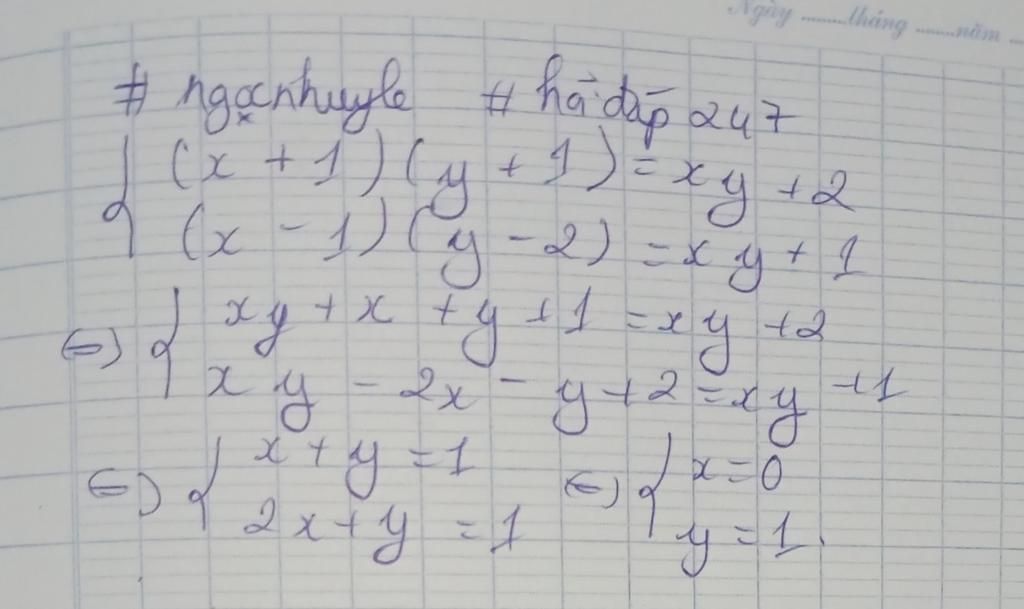 Ngày ........tháng ........năm ...
# ngocnhuyle # hỏi đáp 247
{ (x + 1) (y + 1) = xy + 2
(x - 1) (y - 2) = xy + 1
⇔ { xy + x + y + 1 = xy + 2
xy - 2x - y + 2 = xy + 1
⇔ { x + y = 1 ⇔ { x = 0
2x + y = 1 y = 1.